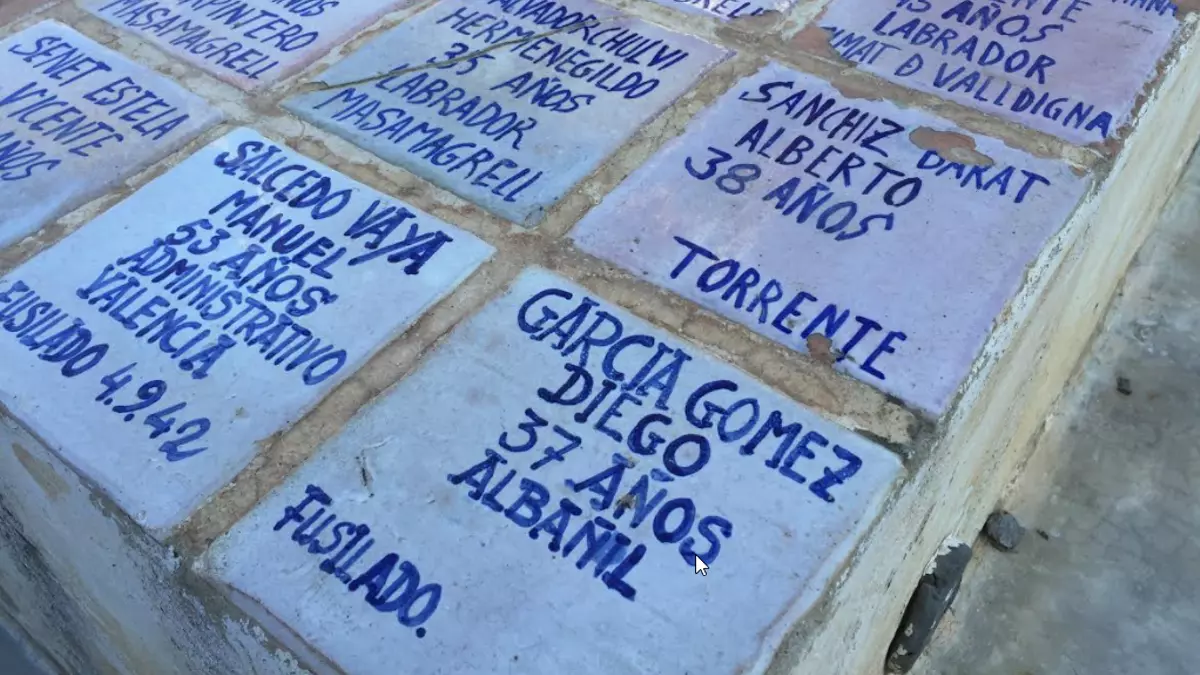 CARPINTERO
MASAMAGRELL
SALVADOR CHULVI
HERMENEGILDO
35 AÑOS
LABRADOR
MASAMAGRELL
AÑOS
LABRADOR
D VALLDIGNA
SENET ESTELA
VICENTE
AÑOS
SALCEDO VAYA
MANUEL
53 AÑOS
ADMINISTRATIVO
VALENCIA
FUSILADO 4.9.42
SANCHIZ DARAT
ALBERTO
38 AÑOS
TORRENTE
GARCIA GOMEZ
DIEGO
37 AÑOS
ALBAÑIL
FUSILADO.